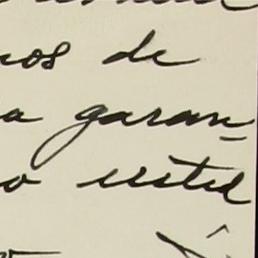 nos de
a garan-
o usted